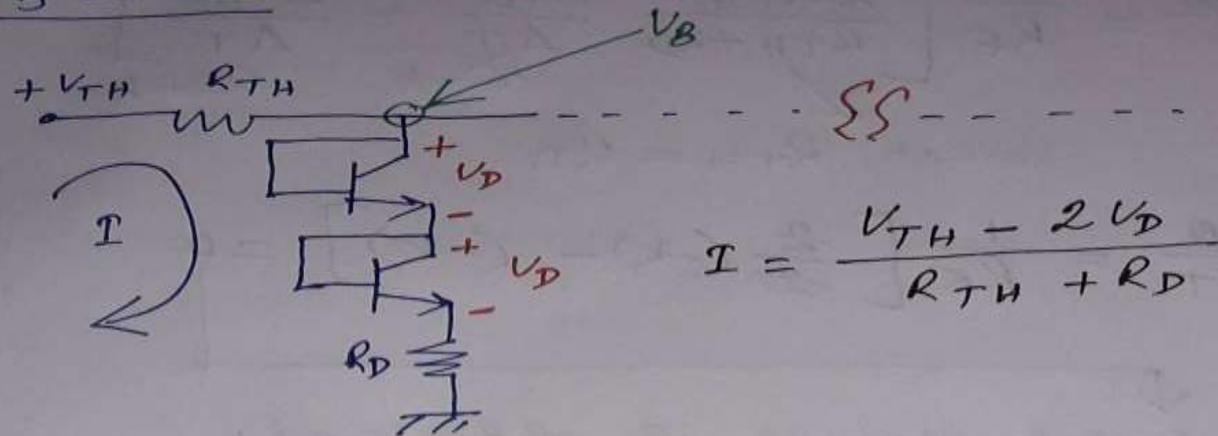 V_B
+ V_TH R_TH
+
V_D
-
I
+
V_D
-
I = (V_TH - 2 V_D) / (R_TH + R_D)
R_D